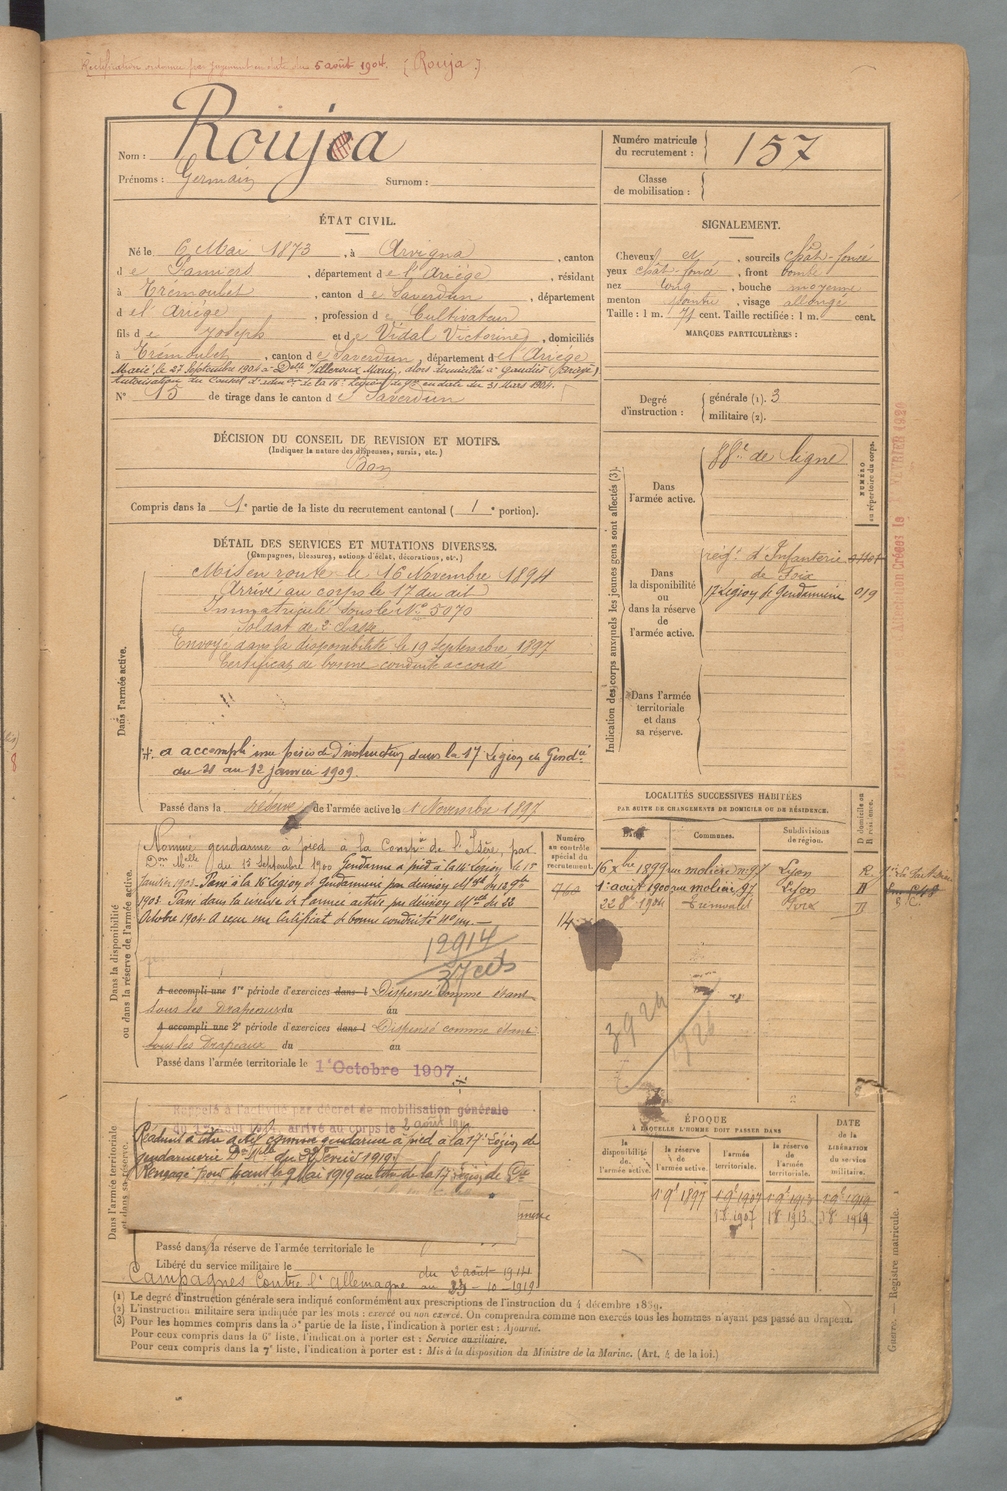 Rectification ordonnée par jugement en date du 5 août 1904. (Rouja.)
Nom : Rouja
Prénoms : Germain Surnom :
Numéro matricule du recrutement : 157
Classe de mobilisation :
ÉTAT CIVIL.
Né le 6 Mai 1873, à Arvigna, canton
de Pamiers, département de l'Ariège, résidant
à Trémoulet, canton de Saverdun, département
de l'Ariège, profession de Cultivateur
fils de Joseph et de Vidal Victorine, domiciliés
à Trémoulet, canton de Saverdun, département de l'Ariège
Marié le 27 Septembre 1904 à Delle Marie, alors domiciliée à Gaudiès (Ariège)
Autorisation du Conseil d'adon de la 16e Légion de Gie en date du 31 Mars 1904.
N° 15 de tirage dans le canton de Saverdun
SIGNALEMENT.
Cheveux et, sourcils chât-foncé
yeux chât-foncé, front bombé
nez long, bouche moyenne
menton pointu, visage allongé
Taille : 1 m. 71 cent. Taille rectifiée : 1 m. cent.
MARQUES PARTICULIÈRES :
Degré d'instruction : générale (1). 3
militaire (2).
DÉCISION DU CONSEIL DE REVISION ET MOTIFS.
(Indiquer la nature des dispenses, sursis, etc.)
Bon
Compris dans la 1e partie de la liste du recrutement cantonal ( 1e portion).
DÉTAIL DES SERVICES ET MUTATIONS DIVERSES.
(Campagnes, blessures, actions d'éclat, décorations, etc.)
Dans l'armée active.
Mis en route le 16 Novembre 1894
Arrivé au corps le 17 du dit
Immatriculé sous le No 5070
Soldat de 2e classe
Envoyé dans la disponibilité le 19 Septembre 1897
Certificat de bonne conduite accordé
a accompli une période d'instruction dans la 17 Légion de Gendie
du au 12 janvier 1909.
Passé dans la réserve de l'armée active le 1 Novembre 1897
Indication des corps auxquels les jeunes gens sont affectés (3).
NUMÉRO au répertoire du corps.
Dans l'armée active.
88e de ligne
Dans la disponibilité ou dans la réserve de l'armée active.
regt d'Infanterie
de Foix
17 Légion de Gendarmerie 019
Dans l'armée territoriale et dans sa réserve.
LOCALITÉS SUCCESSIVES HABITÉES
PAR SUITE DE CHANGEMENTS DE DOMICILE OU DE RÉSIDENCE.
Dates. Communes. Subdivisions de région. D domicile ou R résidence.
16 Xbre 1899 rue molière n°97 Lyon R
1er août 1900 rue molière 97 Lyon
22 8e 1904 Foix D
Dans la disponibilité ou dans la réserve de l'armée active.
Numéro au contrôle spécial du recrutement.
Nommé gendarme à pied à la Compie de l'Isère, par
Don Melle du 13 Septembre 1900 Gendarme à pied à la 14 Légion le 15
Janvier 1902. Passé à la 16 Légion de gendarmerie par décision
1903. Passé dans la réserve de l'armée active par décision du 22
Octobre 1904. A reçu un certificat de bonne conduite
12914
A accompli une 1re période d'exercices dans l Dispensé comme étant
sous les Drapeaux du au
A accompli une 2e période d'exercices dans l Dispensé comme étant
sous les Drapeaux du au
Passé dans l'armée territoriale le 1er Octobre 1907
3924
1926
Dans l'armée territoriale et dans sa réserve.
Rappelé à l'activité par décret de mobilisation générale
arrivé au corps le 2 août
Réadmis à titre actif comme gendarme à pied à la 17e Légion de
gendarmerie
Rengagé pour 1919 au titre de la 17 Légion de Gie
Passé dans la réserve de l'armée territoriale le
Libéré du service militaire le
Campagnes Contre l'Allemagne du 2 août 1914
au 23-10-1919
ÉPOQUE
À LAQUELLE L'HOMME DOIT PASSER DANS
la disponibilité de l'armée active.
la réserve de l'armée active.
l'armée territoriale.
la réserve de l'armée territoriale.
DATE de la LIBÉRATION du service militaire.
1 9e 1897 1 9e 1907 1 9e 1913 1 9e 1919
18 1907 18 1913 18 1919
(1) Le degré d'instruction générale sera indiqué conformément aux prescriptions de l'instruction du 4 décembre 1889.
(2) L'instruction militaire sera indiquée par les mots : exercé ou non exercé. On comprendra comme non exercés tous les hommes n'ayant pas passé au drapeau.
(3) Pour les hommes compris dans la 5e partie de la liste, l'indication à porter est : Ajourné.
Pour ceux compris dans la 6e liste, l'indication à porter est : Service auxiliaire.
Pour ceux compris dans la 7e liste, l'indication à porter est : Mis à la disposition du Ministre de la Marine. (Art. 4 de la loi.)
Guerre. — Registre matricule. 1